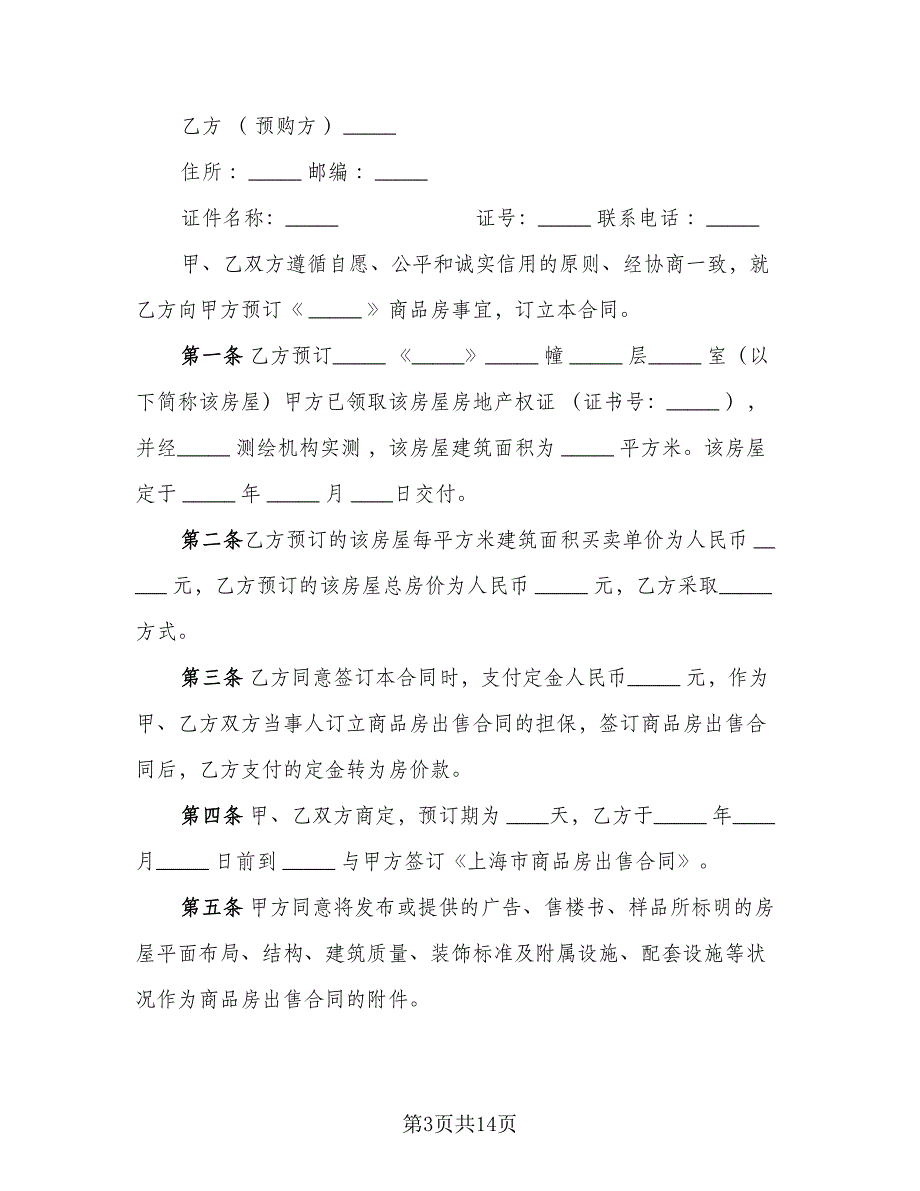 乙方 （ 预购方 ）_____
住所： _____ 邮编： _____
证件名称： _____ 证号： _____ 联系电话： _____
甲、乙双方遵循自愿、公平和诚实信用的原则、经协商一致，就
乙方向甲方预订《 _____ 》商品房事宜，订立本合同。
第一条 乙方预订_____ 《_____》_____ 幢 _____ 层_____ 室（以
下简称该房屋）甲方已领取该房屋房地产权证 （证书号： _____ ），
并经_____ 测绘机构实测 ，该房屋建筑面积为 _____ 平方米。该房屋
定于 _____ 年 _____ 月 ____日交付。
第二条乙方预订的该房屋每平方米建筑面积买卖单价为人民币 __
___ 元，乙方预订的该房屋总房价为人民币 _____ 元，乙方采取_____
方式。
第三条 乙方同意签订本合同时，支付定金人民币_____ 元，作为
甲、乙方双方当事人订立商品房出售合同的担保，签订商品房出售合
同后，乙方支付的定金转为房价款。
第四条 甲、乙双方商定，预订期为 ____天，乙方于_____ 年____
月_____ 日前到 _____ 与甲方签订《上海市商品房出售合同》。
第五条 甲方同意将发布或提供的广告、售楼书、样品所标明的房
屋平面布局、结构、建筑质量、装饰标准及附属设施、配套设施等状
况作为商品房出售合同的附件。
第3页共14页